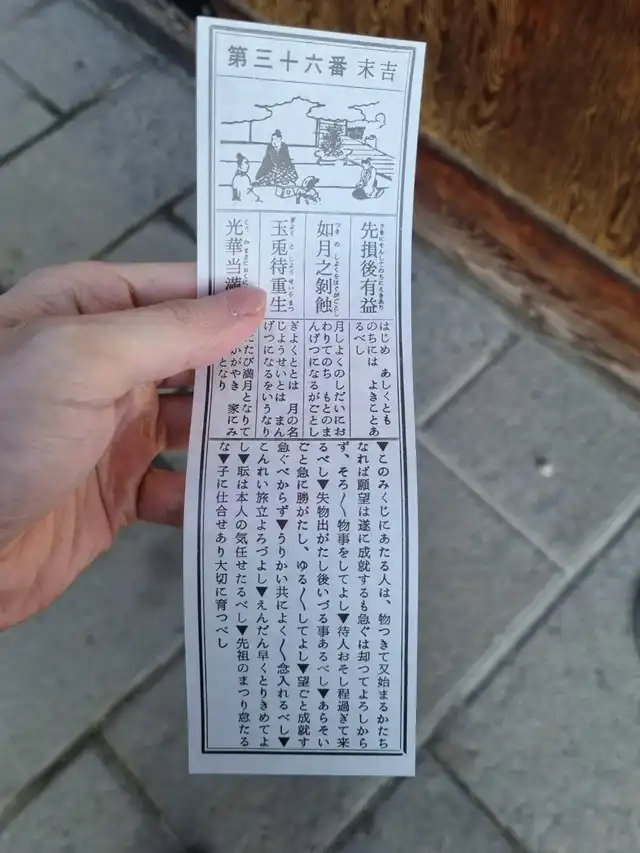 第三十六番 末吉
先損後有益
さきにそんしてのちにえきあり
はじめ あしくとも
のちには よきことあ
るべし
如月之剝蝕
月しよくのしだいにお
わりてのち もとのま
んげつになるがごとし
玉兎待重生
ぎよくととは 月の名
じようせいとは まん
げつになるをいうなり
光華当満
たび満月となりて
かがやき 家にみ
となり
▼このみくじにあたる人は、物つきて又始まるかたち
なれば願望は遂に成就するも急ぐは却つてよろしから
ず、そろ〱物事をしてよし▼待人おそし程過ぎて来
るべし▼失物出がたし後いづる事あるべし▼あらそい
ごと急に勝がたし、ゆる〱してよし▼望ごと成就す
急ぐべからず▼うりかい共によく〱念入れるべし▼
こんれい旅立よろづよし▼えんだん早くとりきめてよ
し▼転は本人の気任せたるべし▼先祖のまつり怠たる
な▼子に仕合せあり大切に育つべし